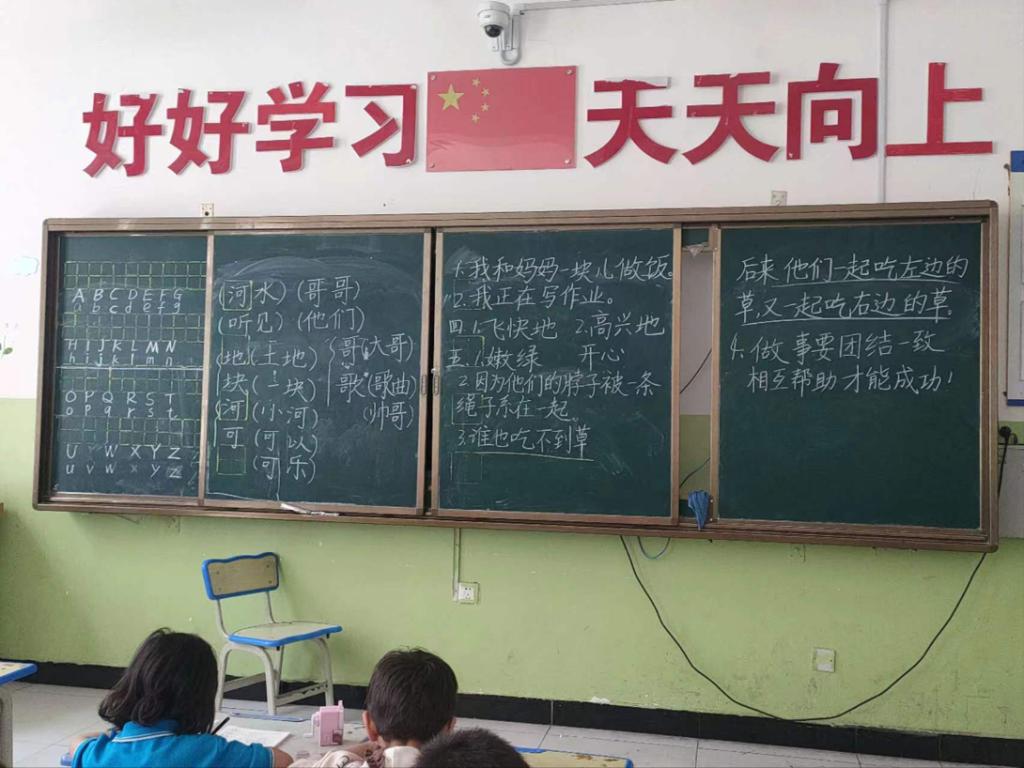 好好学习 天天向上
A B C D E F G
a b c d e f g
H I J K L M N
h i j k l m n
O P Q R S T
o p q r s t
U V W X Y Z
u v w x y z
(河水)(哥哥)
(听见)(他们)
地(土地)
块(一块)
河(小河)
可(可以)
(可乐)
哥(大哥)
歌(歌曲)
(帅哥)
1.我和妈妈一块儿做饭。
2.我正在写作业。
四1.飞快地 2.高兴地
五.1.嫩绿 开心
2.因为他们的脖子被一条
绳子系在一起。
3.谁也吃不到草
后来他们一起吃左边的
草,又一起吃右边的草。
4.做事要团结一致
相互帮助才能成功!